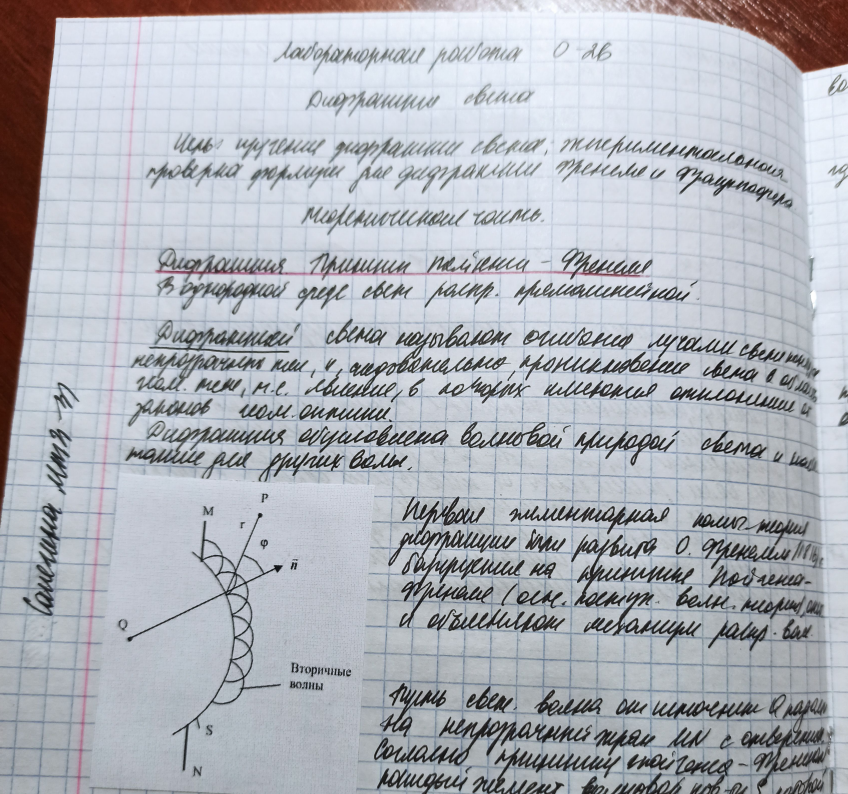 Лабораторная работа О-2В
Дифракция света
Цель: изучение дифракции света, экспериментальная
проверка формулы для дифракции Френеля и Фраунгофера
Теоретическая часть.
Дифракция Принцип Гюйгенса - Френеля
В однородной среде свет распр. прямолинейной.
Дифракцией света называют огибание лучами света
непрозрачных тел, и, следовательно, проникновение света в область
геом. тени, т.е. явление, в которых имеются отклонения от
законов геом. оптики.
Дифракция обусловлена волновой природой света и
также для других волн.
Первая элементарная теория
дифракции была развита О. Френелем
базируясь на принципе Гюйгенса-
Френеля (осн. постул. волн. теории
и объясняют механизм распр. волн
M
P
r
φ
n̄
Q
Вторичные
волны
S
N
Пусть свет. волна от источника Q падает
на непрозрачный экран MN с отверстием
Согласно принципу Гюйгенса-Френеля
каждый элемент волновой пов-ти S